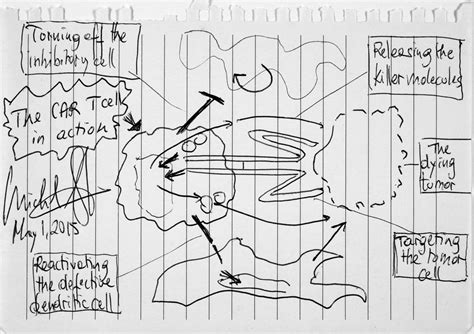 Turning off the
inhibitory cell
Releasing the
killer molecules
The CAR T cell
in action
The
dying
tumor
May 1, 2015
Reactivating
the defective
dendritic cell
Targeting
the tumor
cell